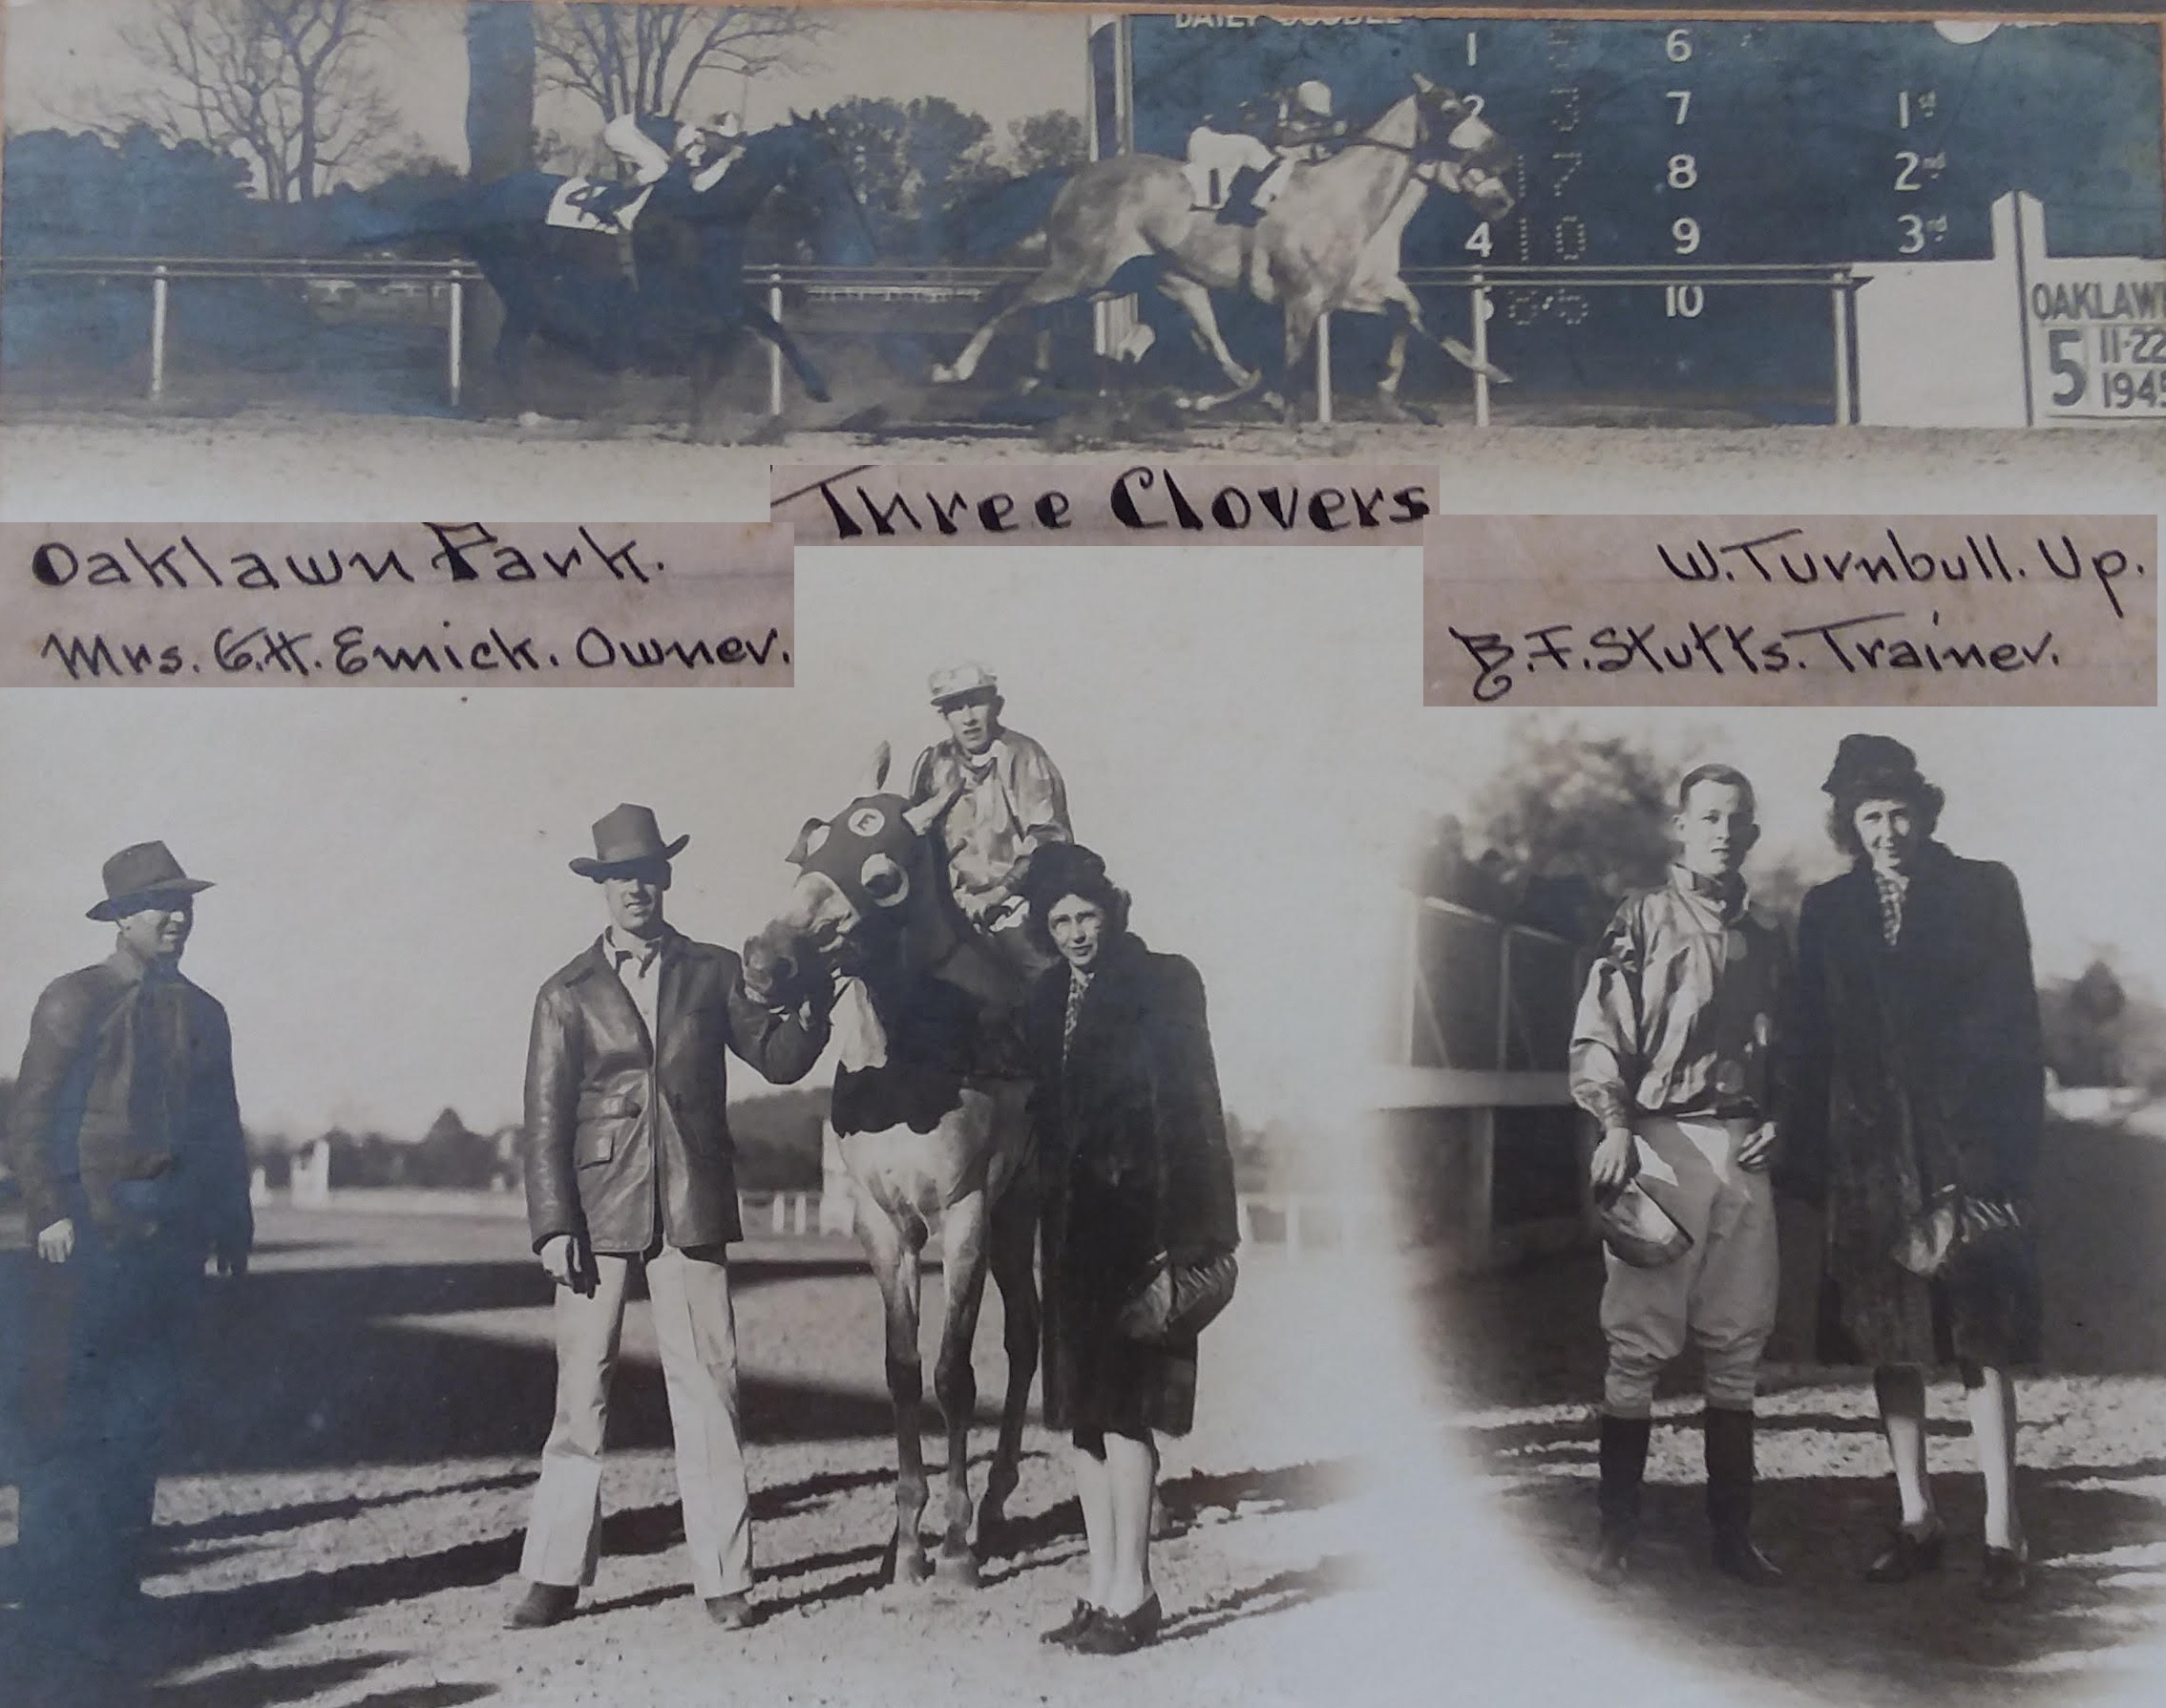 DAILY DOUBLE
1 6
2 7 1st
8 2nd
4 9 3rd
5 10
OAKLAWN
5 11-22
1945
1
Three Clovers
Oaklawn Park.
Mrs. G.H. Emick. Owner.
W. Turnbull. Up.
B.F. Stutts. Trainer.
E